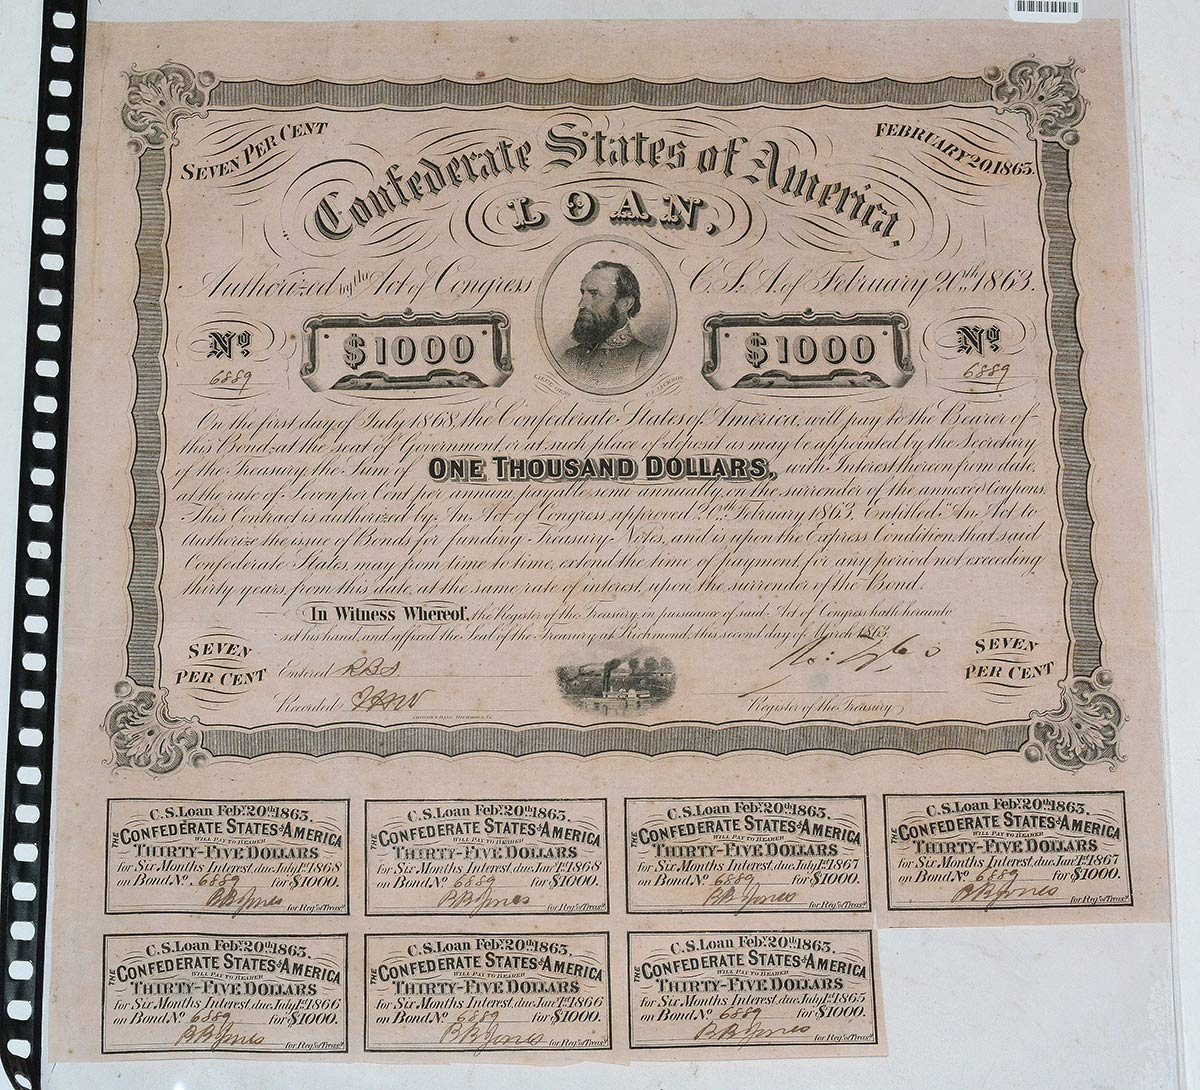 SEVEN PER CENT
FEBRUARY 20, 1863.
Confederate States of America,
LOAN,
Authorized by the Act of Congress C.S.A. of February 20th 1863.
No 6889
$1000
LIEUT. GEN'L T.J. JACKSON
$1000
No 6889
On the first day of July 1868, the Confederate States of America, will pay to the Bearer of
this Bond, at the seat of Government, or at such place of deposit as may be appointed by the Secretary
of the Treasury, the Sum of ONE THOUSAND DOLLARS, with Interest thereon from date,
at the rate of Seven per Cent, per annum, payable semi-annually, on the surrender of the annexed Coupons.
This Contract is authorized by An Act of Congress, approved 20th February 1863, Entitled "An Act to
Authorize the issue of Bonds for funding Treasury Notes, and is upon the Express Condition, that said
Confederate States, may, from time to time, extend the time of payment, for any period not exceeding
thirty years, from this date, at the same rate of interest, upon the surrender of the Bond.
In Witness Whereof, the Register of the Treasury, in pursuance of said Act of Congress hath hereunto
set his hand, and affixed the Seal of the Treasury, at Richmond, this second day of March 1863.
SEVEN PER CENT
Entered
Recorded
Register of the Treasury
SEVEN PER CENT
C.S. Loan Feby. 20th 1863.
THE CONFEDERATE STATES OF AMERICA
WILL PAY TO BEARER
THIRTY-FIVE DOLLARS
for Six Months Interest, due July 1st 1868
on Bond No. 6889 for $1000.
B B Jones
for Reg. of Treasy.
C.S. Loan Feby. 20th 1863.
THE CONFEDERATE STATES OF AMERICA
WILL PAY TO BEARER
THIRTY-FIVE DOLLARS
for Six Months Interest, due Jany 1st 1868
on Bond No. 6889 for $1000.
B B Jones
for Reg. of Treasy.
C.S. Loan Feby. 20th 1863.
THE CONFEDERATE STATES OF AMERICA
WILL PAY TO BEARER
THIRTY-FIVE DOLLARS
for Six Months Interest, due July 1st 1867
on Bond No. 6889 for $1000.
B B Jones
for Reg. of Treasy.
C.S. Loan Feby. 20th 1863.
THE CONFEDERATE STATES OF AMERICA
WILL PAY TO BEARER
THIRTY-FIVE DOLLARS
for Six Months Interest, due Jany 1st 1867
on Bond No. 6889 for $1000.
B B Jones
for Reg. of Treasy.
C.S. Loan Feby. 20th 1863.
THE CONFEDERATE STATES OF AMERICA
WILL PAY TO BEARER
THIRTY-FIVE DOLLARS
for Six Months Interest, due July 1st 1866
on Bond No. 6889 for $1000.
B B Jones
for Reg. of Treasy.
C.S. Loan Feby. 20th 1863.
THE CONFEDERATE STATES OF AMERICA
WILL PAY TO BEARER
THIRTY-FIVE DOLLARS
for Six Months Interest, due Jany 1st 1866
on Bond No. 6889 for $1000.
B B Jones
for Reg. of Treasy.
C.S. Loan Feby. 20th 1863.
THE CONFEDERATE STATES OF AMERICA
WILL PAY TO BEARER
THIRTY-FIVE DOLLARS
for Six Months Interest, due July 1st 1865
on Bond No. 6889 for $1000.
B B Jones
for Reg. of Treasy.